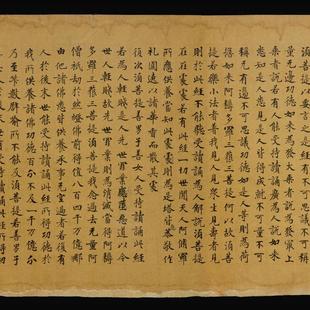 須菩提以要言之是經有不可思議不可稱
量无邊功德如來為發大乘者說為發最上
乘者說若有人能受持讀誦廣為人說如來
悉知是人悉見是人皆得成就不可量不可
稱无有邊不可思議功德如是人等則為荷
擔如來阿耨多羅三藐三菩提何以故須菩
提若樂小法者著我見人見眾生見壽者見
則於此經不能聽受讀誦為人解說須菩提
在在處處若有此經一切世間天人阿脩羅
所應供養當知此處則為是塔皆應恭敬作
禮圍遶以諸華香而散其處
復次須菩提善男子善女人受持讀誦此經
若為人輕賤是人先世罪業應墮惡道以今
世人輕賤故先世罪業則為消滅當得阿耨
多羅三藐三菩提須菩提我念過去无量阿
僧祇劫於然燈佛前得值八百四千万億那
由他諸佛悉皆供養承事无空過者若復有
人於後末世能受持讀誦此經所得功德於
我所供養諸佛功德百分不及一千万億分
乃至筭數譬喻所不能及須菩提若善男子
善女人於後末世有受持讀誦此經所得功